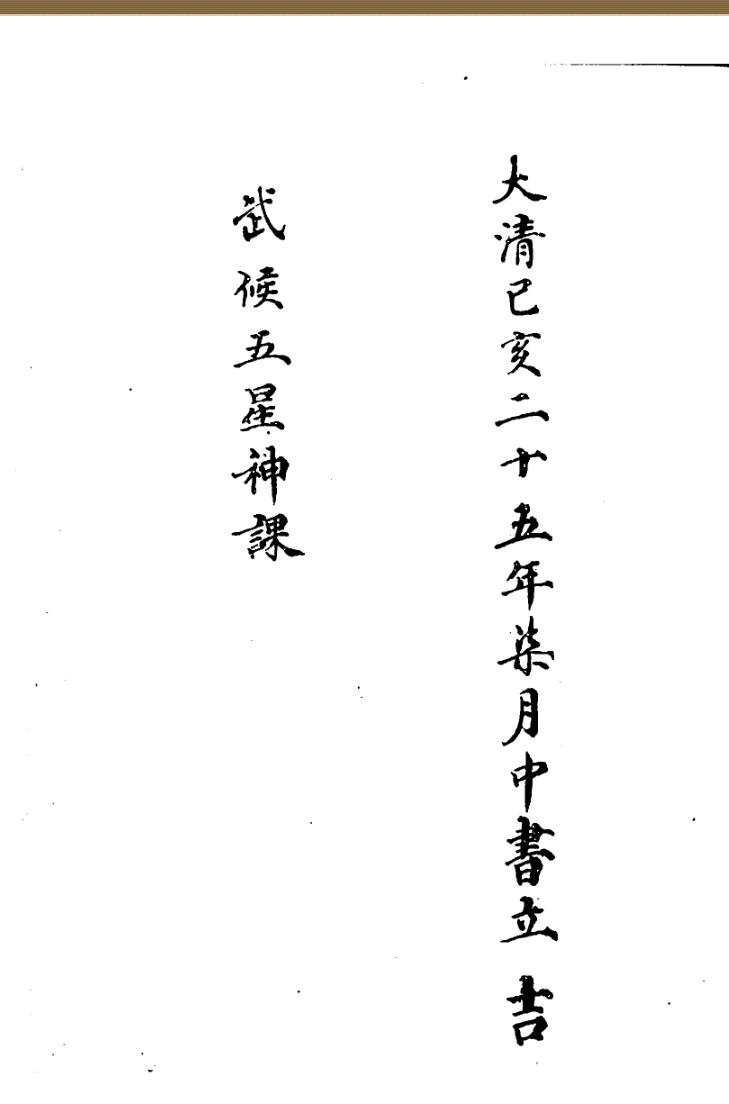 大清已亥二十五年柒月中書立吉
武候五星神課